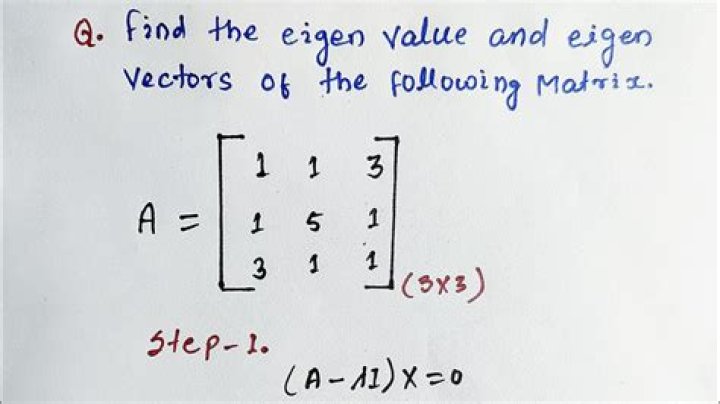 Q. find the eigen value and eigen
vectors of the following Matrix.
A = [ 1 1 3
1 5 1
3 1 1 ] (3x3)
Step-1.
(A - λI) X = 0